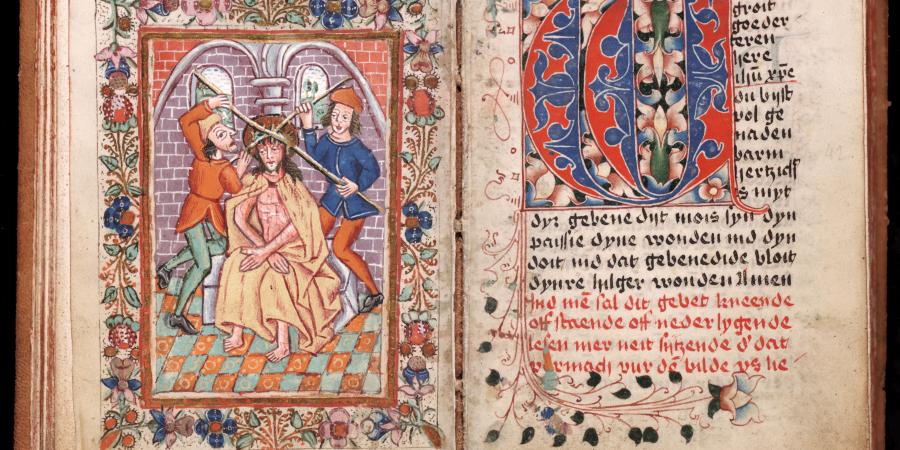 O
groit
goeder
teren
here
ihu xpe
du bist
vol ge
naden
barm
hertzich
s myt
dyr gebenedijt mois syn dyn
passie dyne wonden ind dyn
doit ind dat gebenedide bloit
dynre hilger wonden Amen
Ind me sal dit gebet kneende
off staende off neder lygende
lesen mer neit sitzende dat
vur de bilde ys he